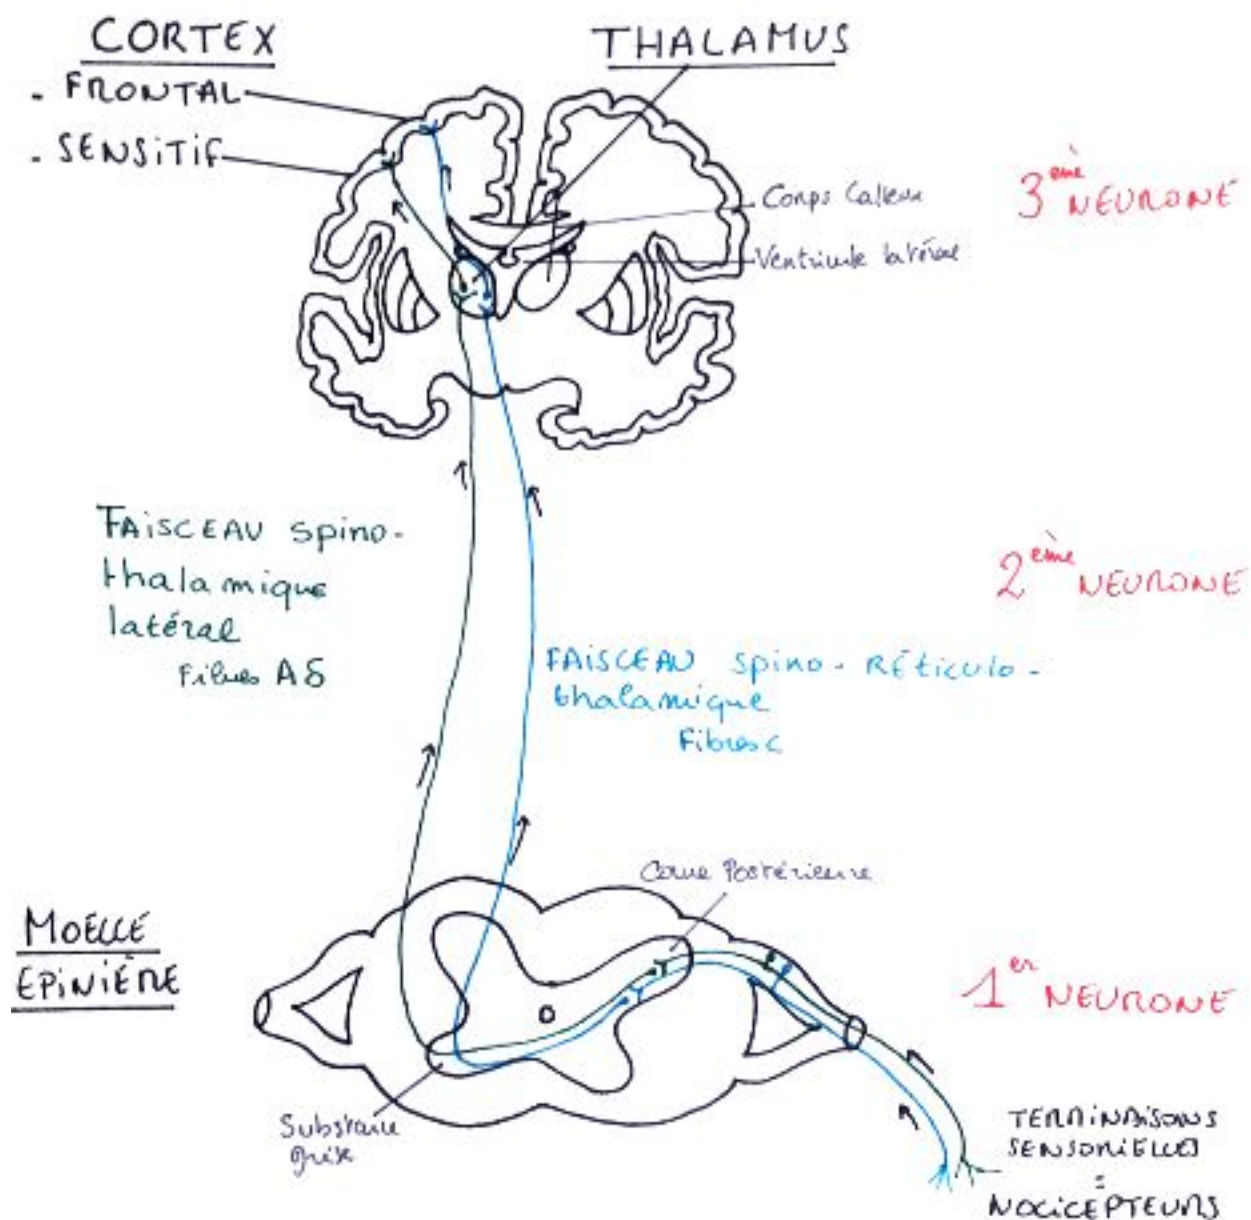 CORTEX
- FRONTAL
- SENSITIF
THALAMUS
Corps Calleux
Ventricule latéral
3ème NEURONE
FAISCEAU spino-
thalamique
latéral
Fibres Aδ
2ème NEURONE
FAISCEAU spino-RÉTICULO-
thalamique
Fibres C
Corne Postérieure
MOELLE
EPINIÈRE
1er NEURONE
Substance
grise
TERMINAISONS
SENSORIELLES
=
NOCICEPTEURS